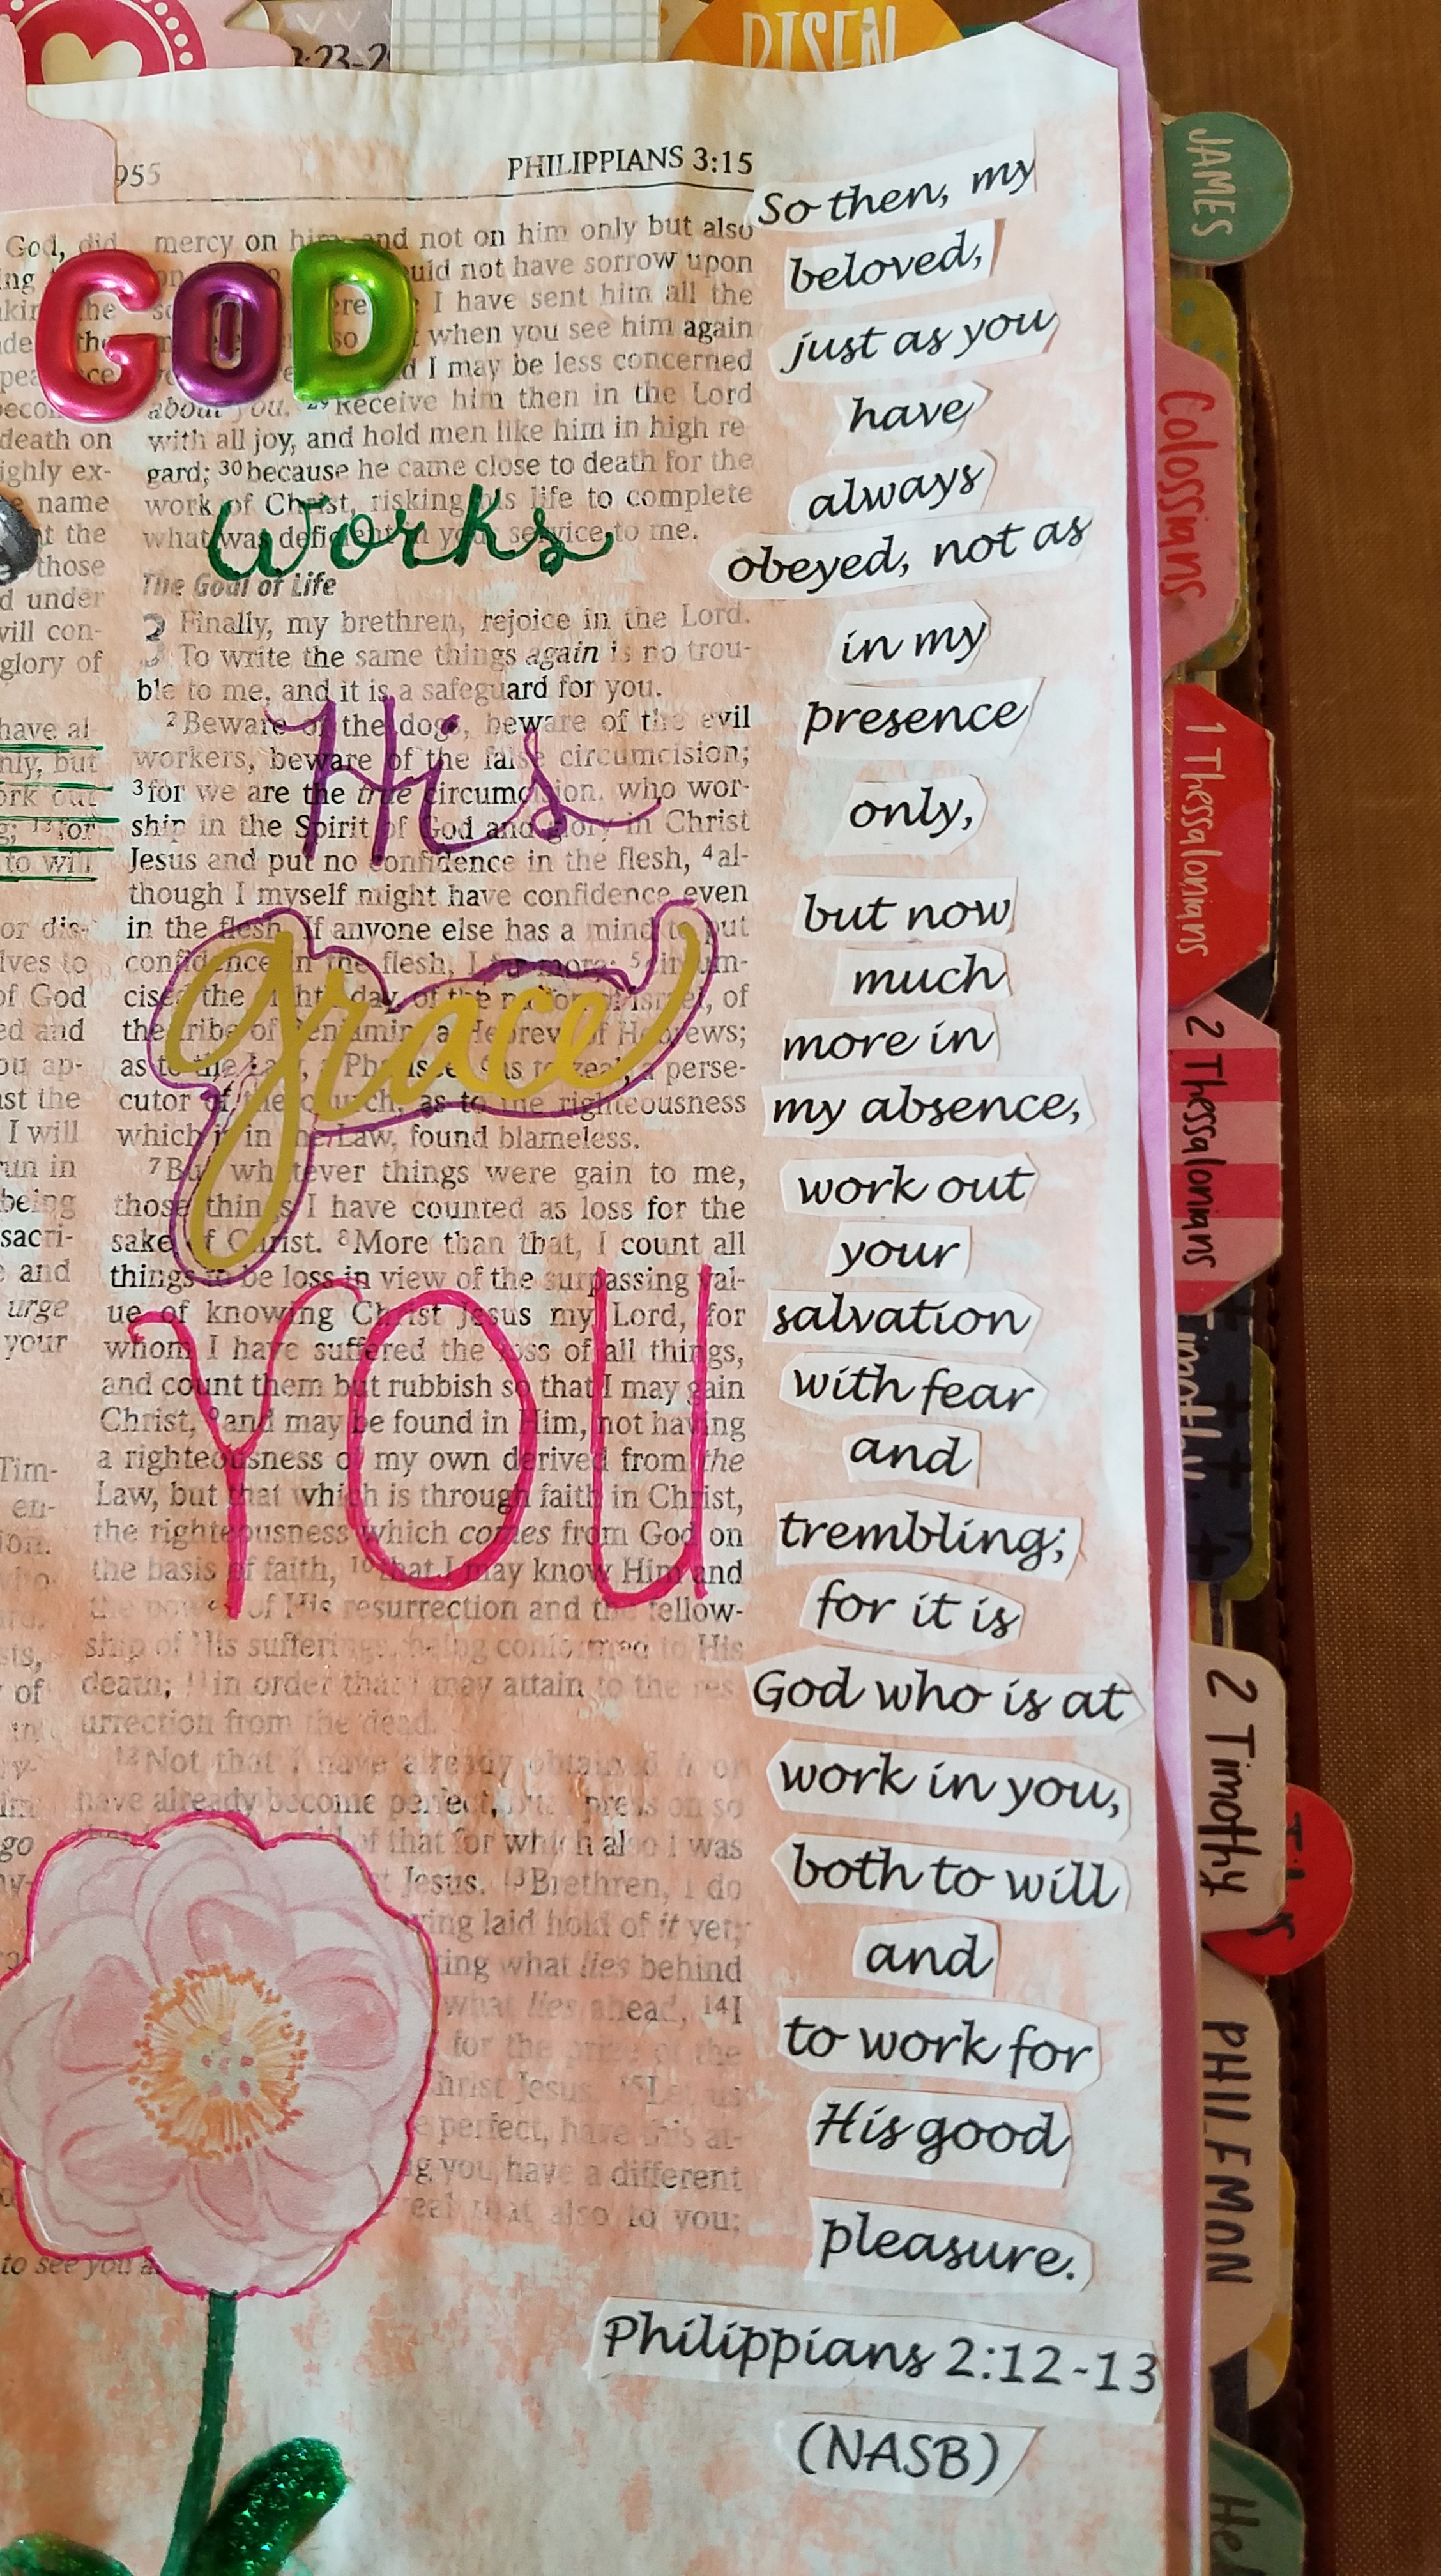 RISEN
955
PHILIPPIANS 3:15
God, did
death on
ighly ex-
name
those
d under
will con-
glory of
have al
nly, but
ork out
for
to will
or dis-
lves to
of God
ed and
ou ap-
st the
I will
run in
being
sacri-
and
urge
your
Tim-
en-
of
go
to see you
GOD
works
His
grace
YOU
mercy on him and not on him only but also
ould not have sorrow upon
I have sent him all the
when you see him again
I may be less concerned
about you. 29 Receive him then in the Lord
with all joy, and hold men like him in high re
gard; 30 because he came close to death for the
work of Christ, risking his life to complete
what was deficient in your service to me.
The Goal of Life
3 Finally, my brethren, rejoice in the Lord.
To write the same things again is no trou-
ble to me, and it is a safeguard for you.
2 Beware of the dogs, beware of the evil
workers, beware of the false circumcision;
3 for we are the true circumcision, who wor-
ship in the Spirit of God and glory in Christ
Jesus and put no confidence in the flesh, 4 al-
though I myself might have confidence even
in the flesh. If anyone else has a mind to put
confidence in the flesh, I far more: 5 circum-
cised the eighth day, of the nation of Israel, of
the tribe of Benjamin, a Hebrew of Hebrews;
as to the Law, a Pharisee; 6 as to zeal, a perse-
cutor of the church; as to the righteousness
which is in the Law, found blameless.
7 But whatever things were gain to me,
those things I have counted as loss for the
sake of Christ. 8 More than that, I count all
things to be loss in view of the surpassing val-
ue of knowing Christ Jesus my Lord, for
whom I have suffered the loss of all things,
and count them but rubbish so that I may gain
Christ, 9 and may be found in Him, not having
a righteousness of my own derived from the
Law, but that which is through faith in Christ,
the righteousness which comes from God on
the basis of faith, 10 that I may know Him and
the power of His resurrection and the fellow-
ship of His sufferings, being conformed to His
death; 11 in order that I may attain to the res-
urrection from the dead.
12 Not that I have already obtained it or
have already become perfect, but I press on so
of that for which also I was
Jesus. 13 Brethren, I do
ving laid hold of it yet;
ting what lies behind
what lies ahead, 14 I
for the prize of the
Christ Jesus. 15 Let us
perfect, have this at-
you have a different
that also to you;
So then, my
beloved,
just as you
have
always
obeyed, not as
in my
presence
only,
but now
much
more in
my absence,
work out
your
salvation
with fear
and
trembling;
for it is
God who is at
work in you,
both to will
and
to work for
His good
pleasure.
Philippians 2:12-13
(NASB)
JAMES
Colossians
1 Thessalonians
2 Thessalonians
Timothy
2 Timothy
PHILEMON